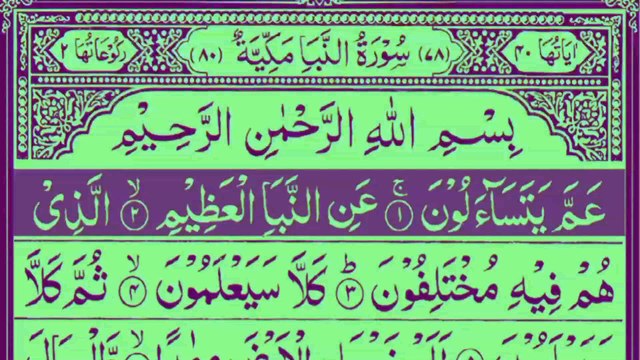 اٰيَاتُهَا ٤٠ (٧٨) سُوْرَةُ النَّبَاِ مَكِّيَّةٌ (٨٠) رُكُوْعَاتُهَا ٢
بِسْمِ اللهِ الرَّحْمٰنِ الرَّحِيْمِ
عَمَّ يَتَسَآءَلُوْنَ ۚ ١ عَنِ النَّبَاِ الْعَظِيْمِ ۙ ٢ الَّذِىْ
هُمْ فِيْهِ مُخْتَلِفُوْنَ ؕ ٣ كَلَّا سَيَعْلَمُوْنَ ۙ ٤ ثُمَّ كَلَّا